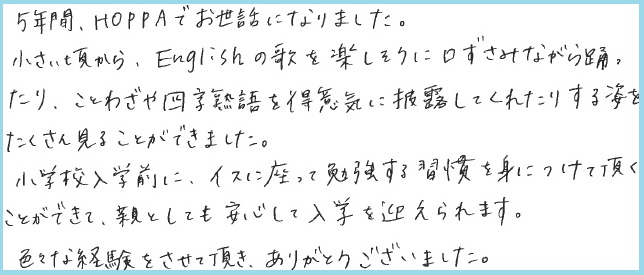 5年間、HOPPAでお世話になりました。
小さい頃から、Englishの歌を楽しそうに口ずさみながら踊っ
たり、ことわざや四字熟語を得意気に披露してくれたりする姿を
たくさん見ることができました。
小学校入学前に、イスに座って勉強する習慣を身につけて頂く
ことができて、親としても安心して入学を迎えられます。
色々な経験をさせて頂き、ありがとうございました。